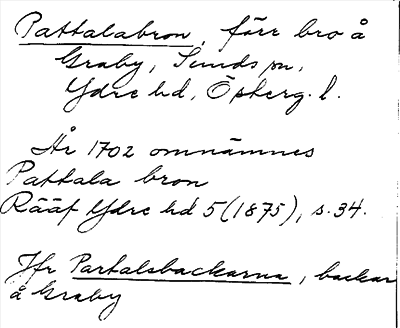 Pattalabron, förr bro å
Graby, Sunds sn,
Ydre hd, Österg. l.
År 1702 omnämnes
Pattala bron
Rääf Ydre hd 5 (1875), s. 34.
Jfr Partalsbackarna, backar
å Graby